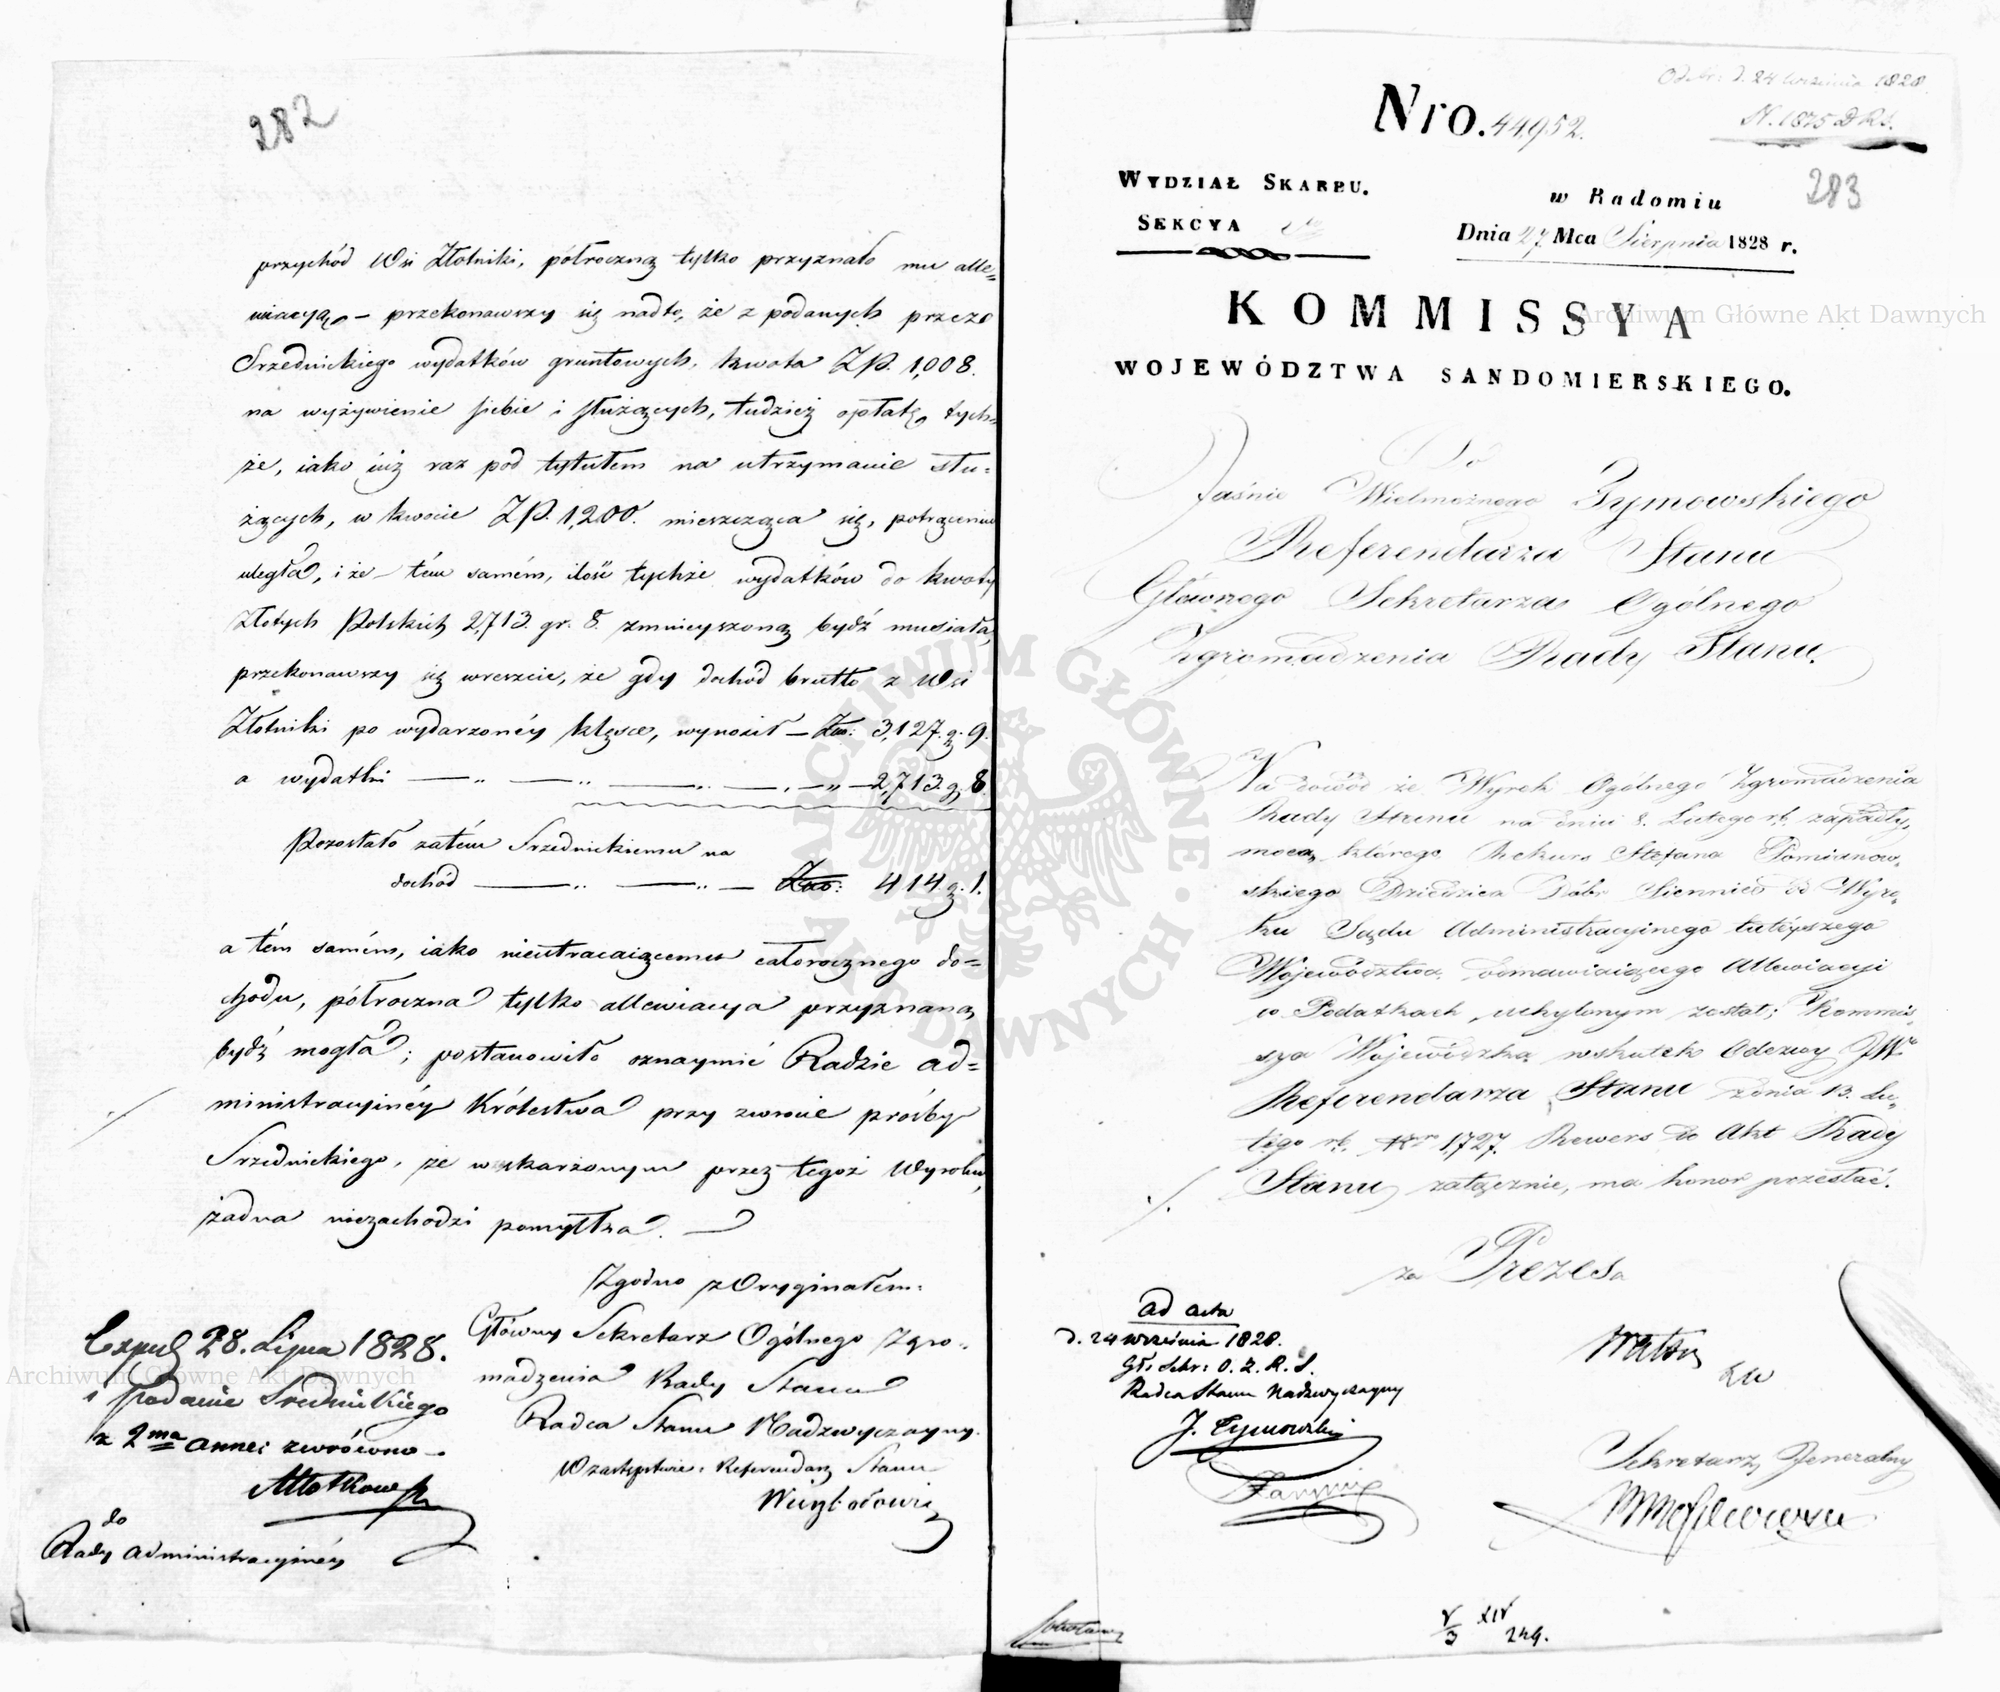 282
przychód Wsi Złotniki, półroczną tylko przyznało mu alle=
wiacyą, – przekonawszy się nadto, że z podanych przez
Srzednickiego wydatków gruntowych, kwota Zp. 1,008.
na wyżywienie siebie i służących, tudzież opłatę tych=
że, iako iuż raz pod tytułem na utrzymanie słu=
żących, w kwocie Zp. 1,200. mieszcząca się, potrąceniu
uległa, i że – tém samém, ilość tychże wydatków do kwoty
Złotych Polskich 2,713. gr. 8. zmnieyszoną bydź musiała,
przekonawszy się wreszcie, że gdy dochód brutto z Wsi
Złotniki po wydarzonéy klęsce, wynosił – Złp: 3,127. g. 9.
a wydatki — „ — „ — „ — „ — 2,713. g. 8.
Pozostało zatém Srzednickiemu na
dochód — „ — „ — Złp: 414. g. 1.
a tém samém, iako nieutracaiącemu całorocznego do=
chodu, półroczna tylko allewiacya przyznaną
bydź mogła; postanowiło oznaymić Radzie Ad=
ministracyinéy Królestwa przy zwrocie prośby
Srzednickiego, że w skarżonym przez tegoż Wyroku,
żadna niezachodzi pomyłka. —
Zgodno z Oryginałem:
Główny Sekretarz Ogólnego Zgro=
madzenia Rady Stanu
Radca Stanu Nadzwyczayny.
W zastępstwie: Referendarz Stanu
Exped. 28. Lipca 1828.
i Podanie Srednickiego
z 2ma annex: zwrócono –
do
Rady Administracyinéy
Odebr: d. 24 Września 1828
N. 1875 D.R.S.
Nro. 44,952.
283
WYDZIAŁ SKARBU.
SEKCYA
w Radomiu
Dnia 27 Mca Sierpnia 1828 r.
KOMMISSYA
WOJEWÓDZTWA SANDOMIERSKIEGO.
Do
Jaśnie Wielmożnego Tymowskiego
Referendarza Stanu
Głównego Sekretarza Ogólnego
Zgromadzenia Rady Stanu.
Na dowód że Wyrok Ogólnego Zgromadzenia
Rady Stanu na dniu 8. Lutego r.b. zapadły,
mocą którego Rekurs Stefana Pomianow=
skiego Dziedzica Dóbr Siennico od Wyro=
ku Sądu Administracyinego tutéyszego
Województwa, odmawiaiącego Allewiacyi
w Podatkach, uchylonym został; Kommis=
sya Wojewódzka wskutek Odezwy JW.
Referendarza Stanu z dnia 13. Lu=
tego r.b. Nro 1,727. Rewers do Akt Rady
Stanu załącznie, ma honor przesłać.
za Prezesa
ad acta
d. 24 Września 1828.
Gł: Sekr: O. Z. R. S.
Radca Stanu Nadzwyczayny
J. Tymowski
Sekretarz Jeneralny
V/3 XIV/249.
Archiwum Główne Akt Dawnych
Archiwum Główne Akt Dawnych
ARCHIWUM GŁÓWNE · AKT DAWNYCH ·